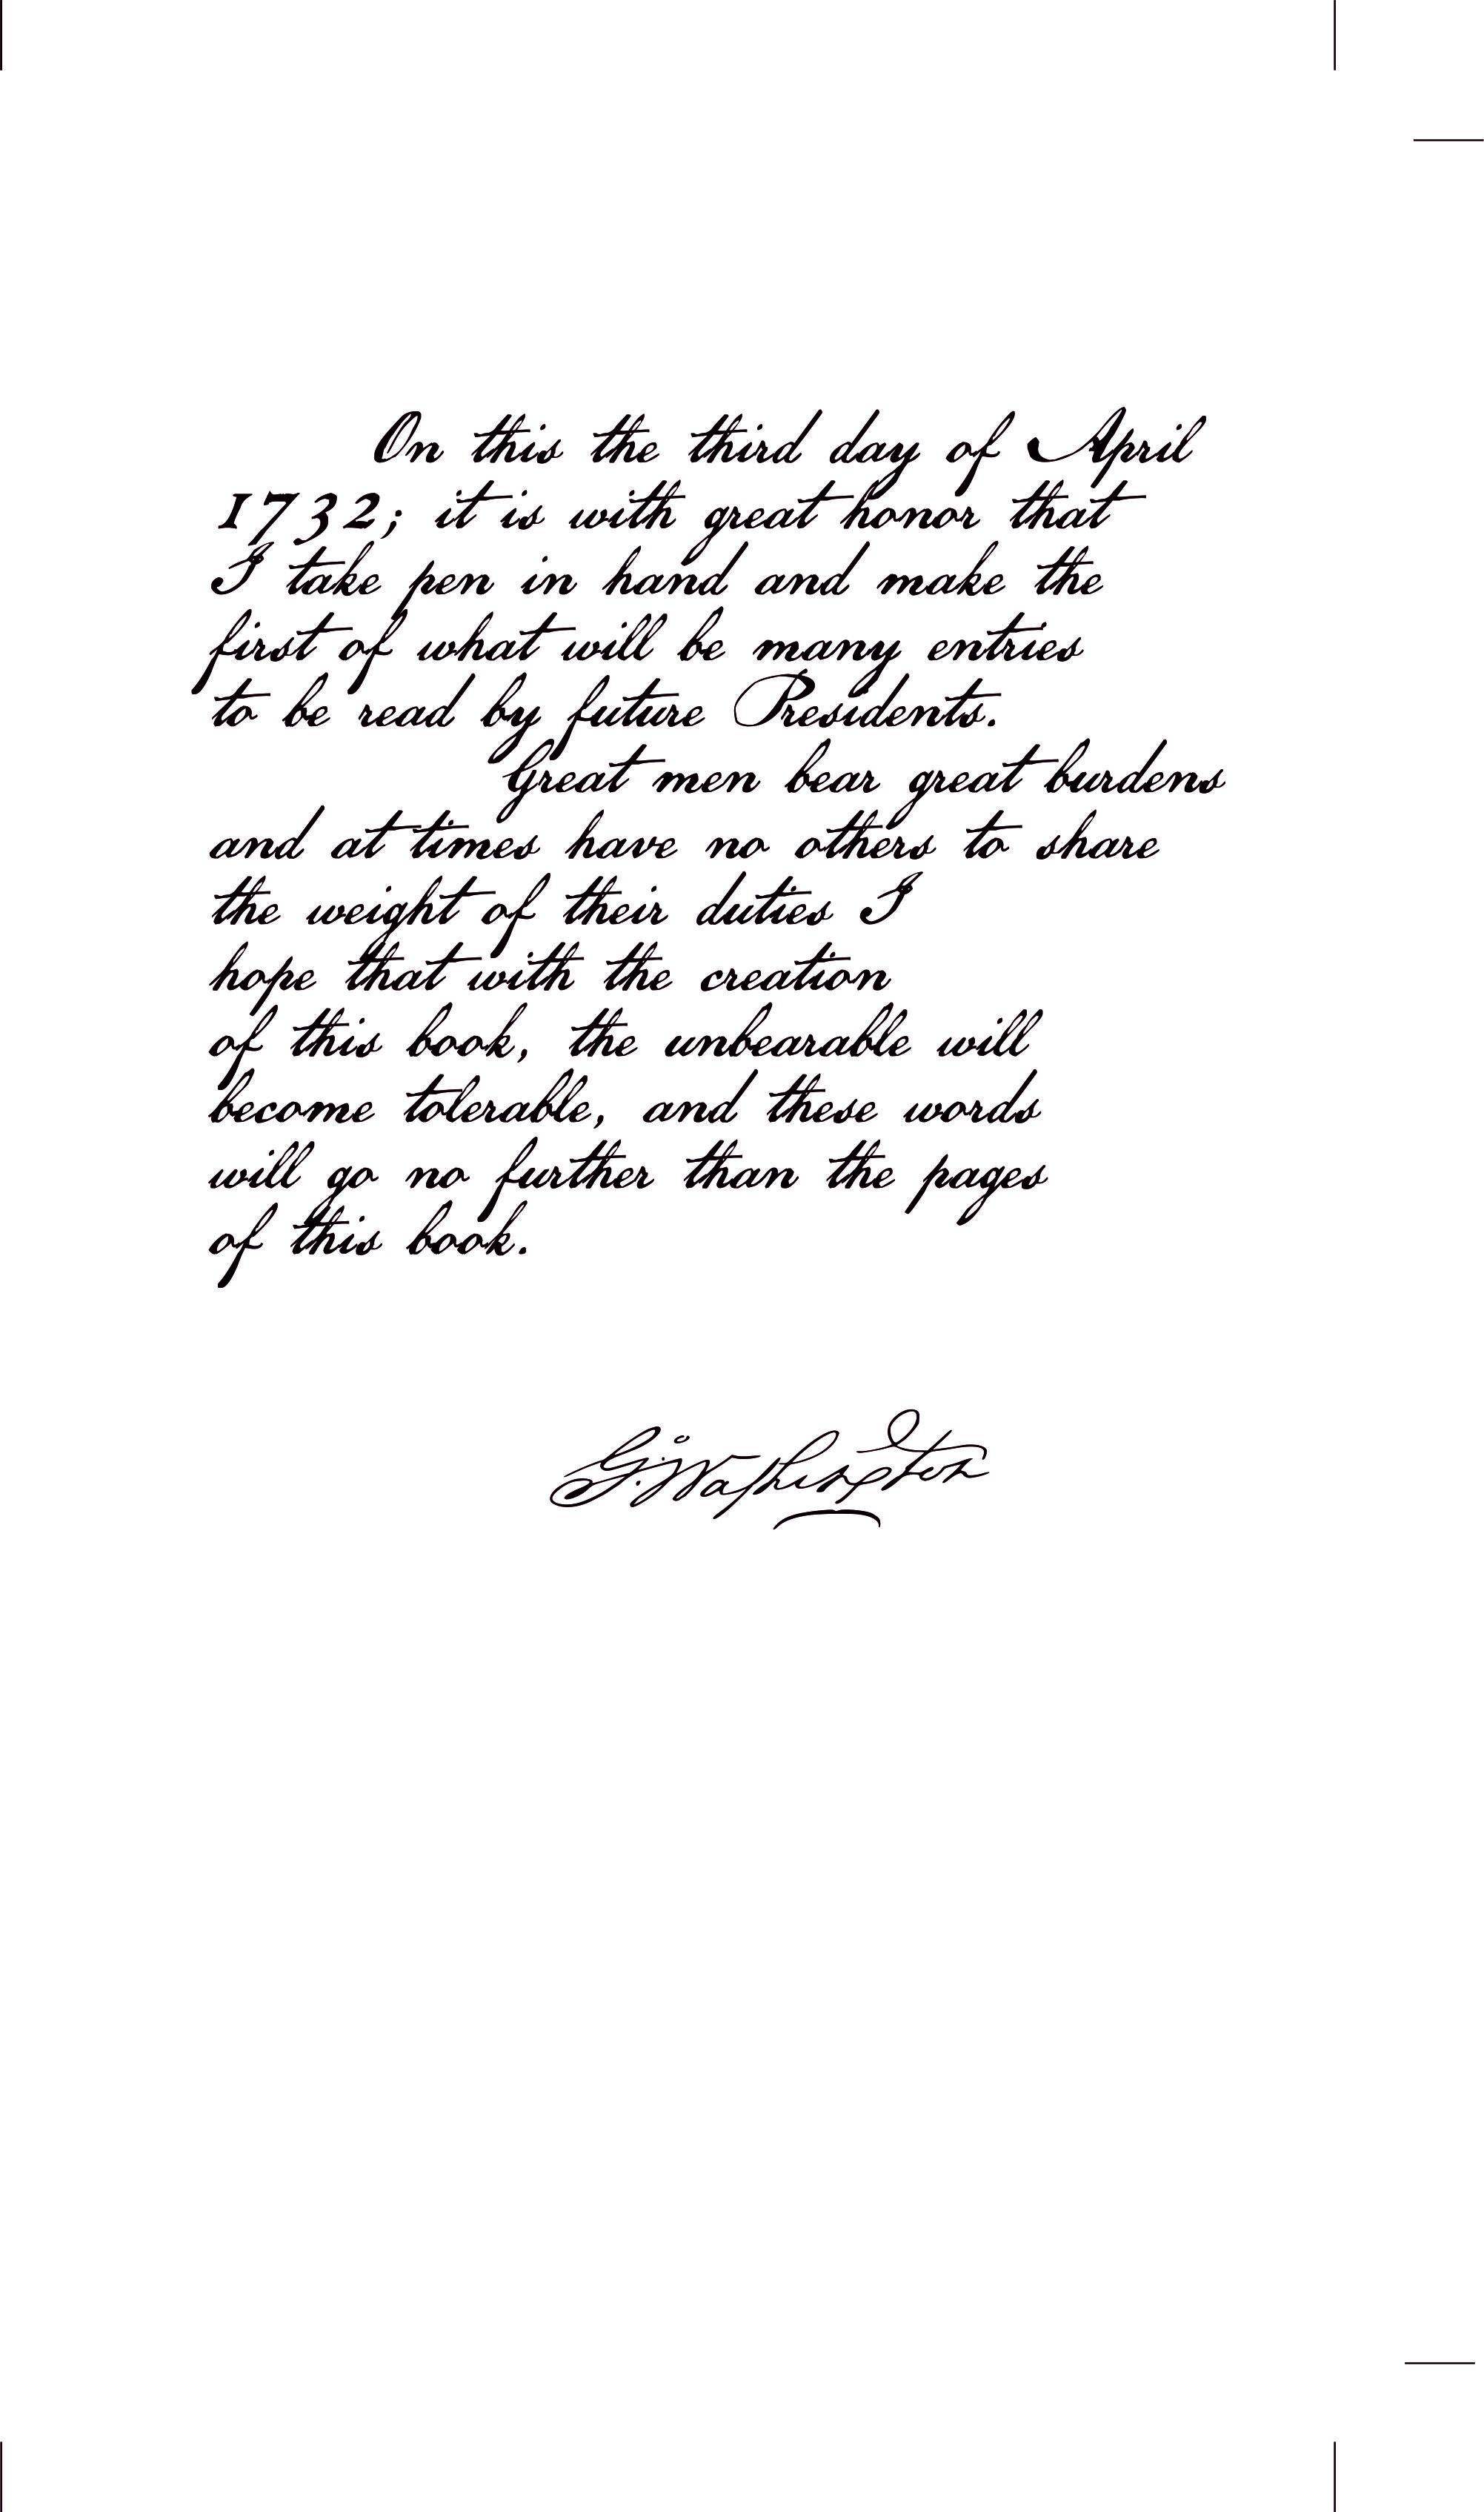 On this the third day of April
1732; it is with great honor that
I take pen in hand and make the
first of what will be many entries
to be read by future Presidents.
Great men bear great burdens
and at times have no others to share
the weight of their duties I
hope that with the creation
of this book, the unbearable will
become tolerable, and these words
will go no further than the pages
of this book.
G. Washington